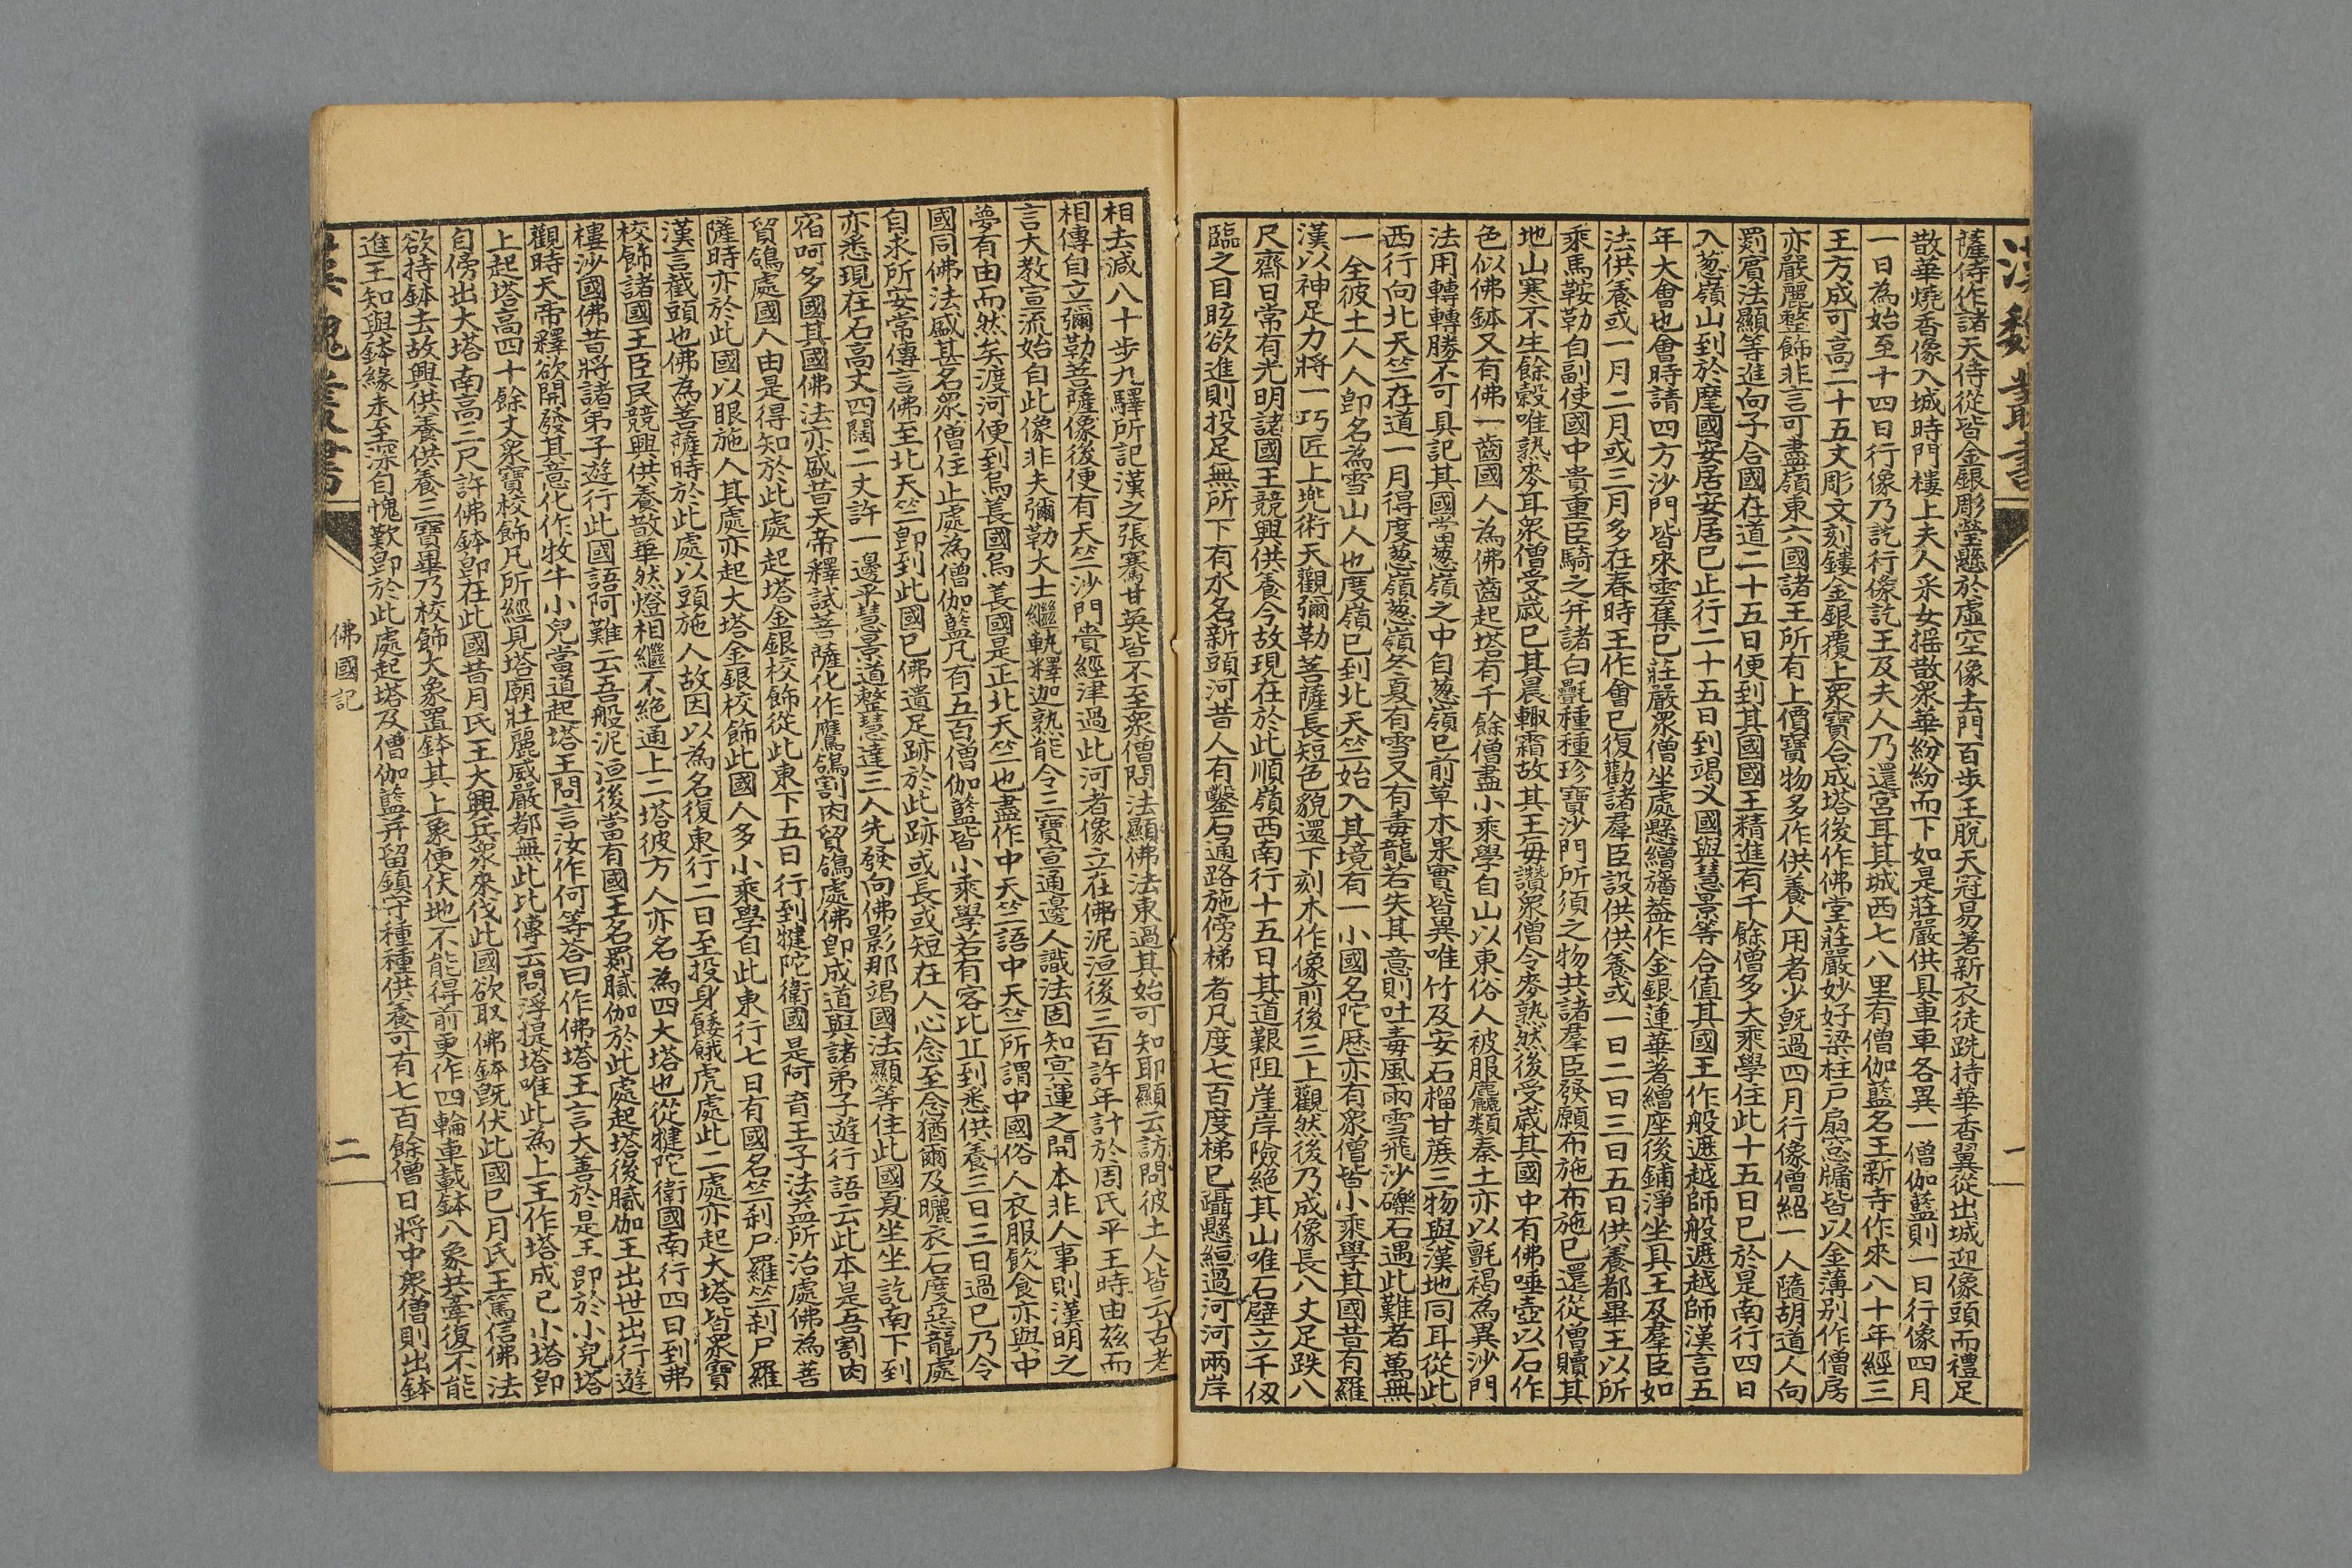 漢魏叢書
一
薩侍作諸天侍從皆金銀彫瑩懸於虛空像去門百步王脫天冠易著新衣徒跣持華香翼從出城迎像頭面禮足
散華燒香像入城時門樓上夫人采女搖散眾華紛紛而下如是莊嚴供具車車各異一僧伽藍則一日行像四月
一日為始至十四日行像乃訖行像訖王及夫人乃還宮耳其城西七八里有僧伽藍名王新寺作來八十年經三
王方成可高二十五丈彫文刻鏤金銀覆上眾寶合成塔後作佛堂莊嚴妙好梁柱戶扇窓牖皆以金薄别作僧房
亦嚴麗整飾非言可盡嶺東六國諸王所有上價寶物多作供養人用者少既過四月行像僧紹一人隨胡道人向
罽賓法顯等進向子合國在道二十五日便到其國國王精進有千餘僧多大乘學住此十五日已於是南行四日
入葱嶺山到於麾國安居安居已止行二十五日到竭义國與慧景等合值其國王作般遮越師般遮越師漢言五
年大會也會時請四方沙門皆來雲集已莊嚴眾僧坐處懸繒旛葢作金銀蓮華著繒座後鋪淨坐具王及羣臣如
法供養或一月二月或三月多在春時王作會已復勸諸羣臣設供供養或一日二日三日五日供養都畢王以所
乘馬鞍勒自副使國中貴重臣騎之并諸白㲲種種珍寶沙門所須之物共諸羣臣發願布施布施已還從僧贖其
地山寒不生餘穀唯熟麥耳眾僧受歲已其晨輒霜故其王每讚眾僧令麥熟然後受歲其國中有佛唾壺以石作
色似佛鉢又有佛一齒國人為佛齒起塔有千餘僧盡小乘學自山以東俗人被服麤類秦土亦以氈褐為異沙門
法用轉轉勝不可具記其國當葱嶺之中自葱嶺已前草木果實皆異唯竹及安石榴甘蔗三物與漢地同耳從此
西行向北天竺在道一月得度葱嶺葱嶺冬夏有雪又有毒龍若失其意則吐毒風雨雪飛沙礫石遇此難者萬無
一全彼土人人卽名為雪山人也度嶺已到北天竺始入其境有一小國名陀歷亦有眾僧皆小乘學其國昔有羅
漢以神足力將一巧匠上兜術天觀彌勒菩薩長短色貌還下刻木作像前後三上觀然後乃成像長八丈足趺八
尺齋日常有光明諸國王競興供養今故現在於此順嶺西南行十五日其道艱阻崖岸險絕其山唯石壁立千仞
臨之目眩欲進則投足無所下有水名新頭河昔人有鑿石通路施傍梯者凡度七百度梯已躡懸絙過河河兩岸
相去減八十步九驛所記漢之張騫甘英皆不至眾僧問法顯佛法東過其始可知耶顯云訪問彼土人皆云古老
相傳自立彌勒菩薩像後便有天竺沙門賫經津過此河者像立在佛泥洹後三百許年計於周氏平王時由茲而
言大教宣流始自此像非夫彌勒大士繼軌釋迦熟能令三寶宣通邊人識法固知冥運之開本非人事則漢明之
夢有由而然矣渡河便到烏萇國烏萇國是正北天竺也盡作中天竺語中天竺所謂中國俗人衣服飲食亦與中
國同佛法盛甚名眾僧住止處為僧伽藍凡有五百僧伽藍皆小乘學若有客比丘到悉供養三日三日過已乃令
自求所安常傳言佛至北天竺卽到此國已佛遺足跡於此跡或長或短在人心念至念猶爾及曬衣石度惡龍處
亦悉現在石高丈四闊二丈許一邊平慧景道整慧達三人先發向佛影那竭國法顯等住此國夏坐坐訖南下到
宿呵多國其國佛法亦盛昔天帝釋試菩薩化作鷹鴿割肉貿鴿處佛卽成道與諸弟子遊行語云此本是吾割肉
貿鴿處國人由是得知於此處起塔金銀校飾從此東下五日行到犍陀衛國是阿育王子法益所治處佛為菩
薩時亦於此國以眼施人其處亦起大塔金銀校飾此國人多小乘學自此東行七日有國名竺刹尸羅竺刹尸羅
漢言截頭也佛為菩薩時於此處以頭施人故因以為名復東行二日至投身餧餓虎處此二處亦起大塔皆眾寶
校飾諸國王臣民競興供養散華然燈相繼不絕通上二塔彼方人亦名為四大塔也從犍陀衛國南行四日到弗
樓沙國佛昔將諸弟子遊行此國語阿難云吾般泥洹後當有國王名罽膩伽於此處起塔後膩伽王出世出行遊
觀時天帝釋欲開發其意化作牧牛小兒當道起塔王問言汝作何等荅曰作佛塔王言大善於是王卽於小兒塔
上起塔高四十餘丈眾寶校飾凡所經見塔廟壯麗威嚴都無此比傳云閻浮提塔唯此為上王作塔成已小塔卽
自傍出大塔南高三尺許佛鉢卽在此國昔月氏王大興兵眾來伐此國欲取佛鉢既伏此國已月氏王篤信佛法
欲持鉢去故興供養供養三寶畢乃校飾大象置鉢其上象便伏地不能得前更作四輪車載鉢八象共牽復不能
進王知與鉢緣未至深自愧歎卽於此處起塔及僧伽藍并留鎮守種種供養可有七百餘僧日將中眾僧則出鉢
漢魏叢書
佛國記
二